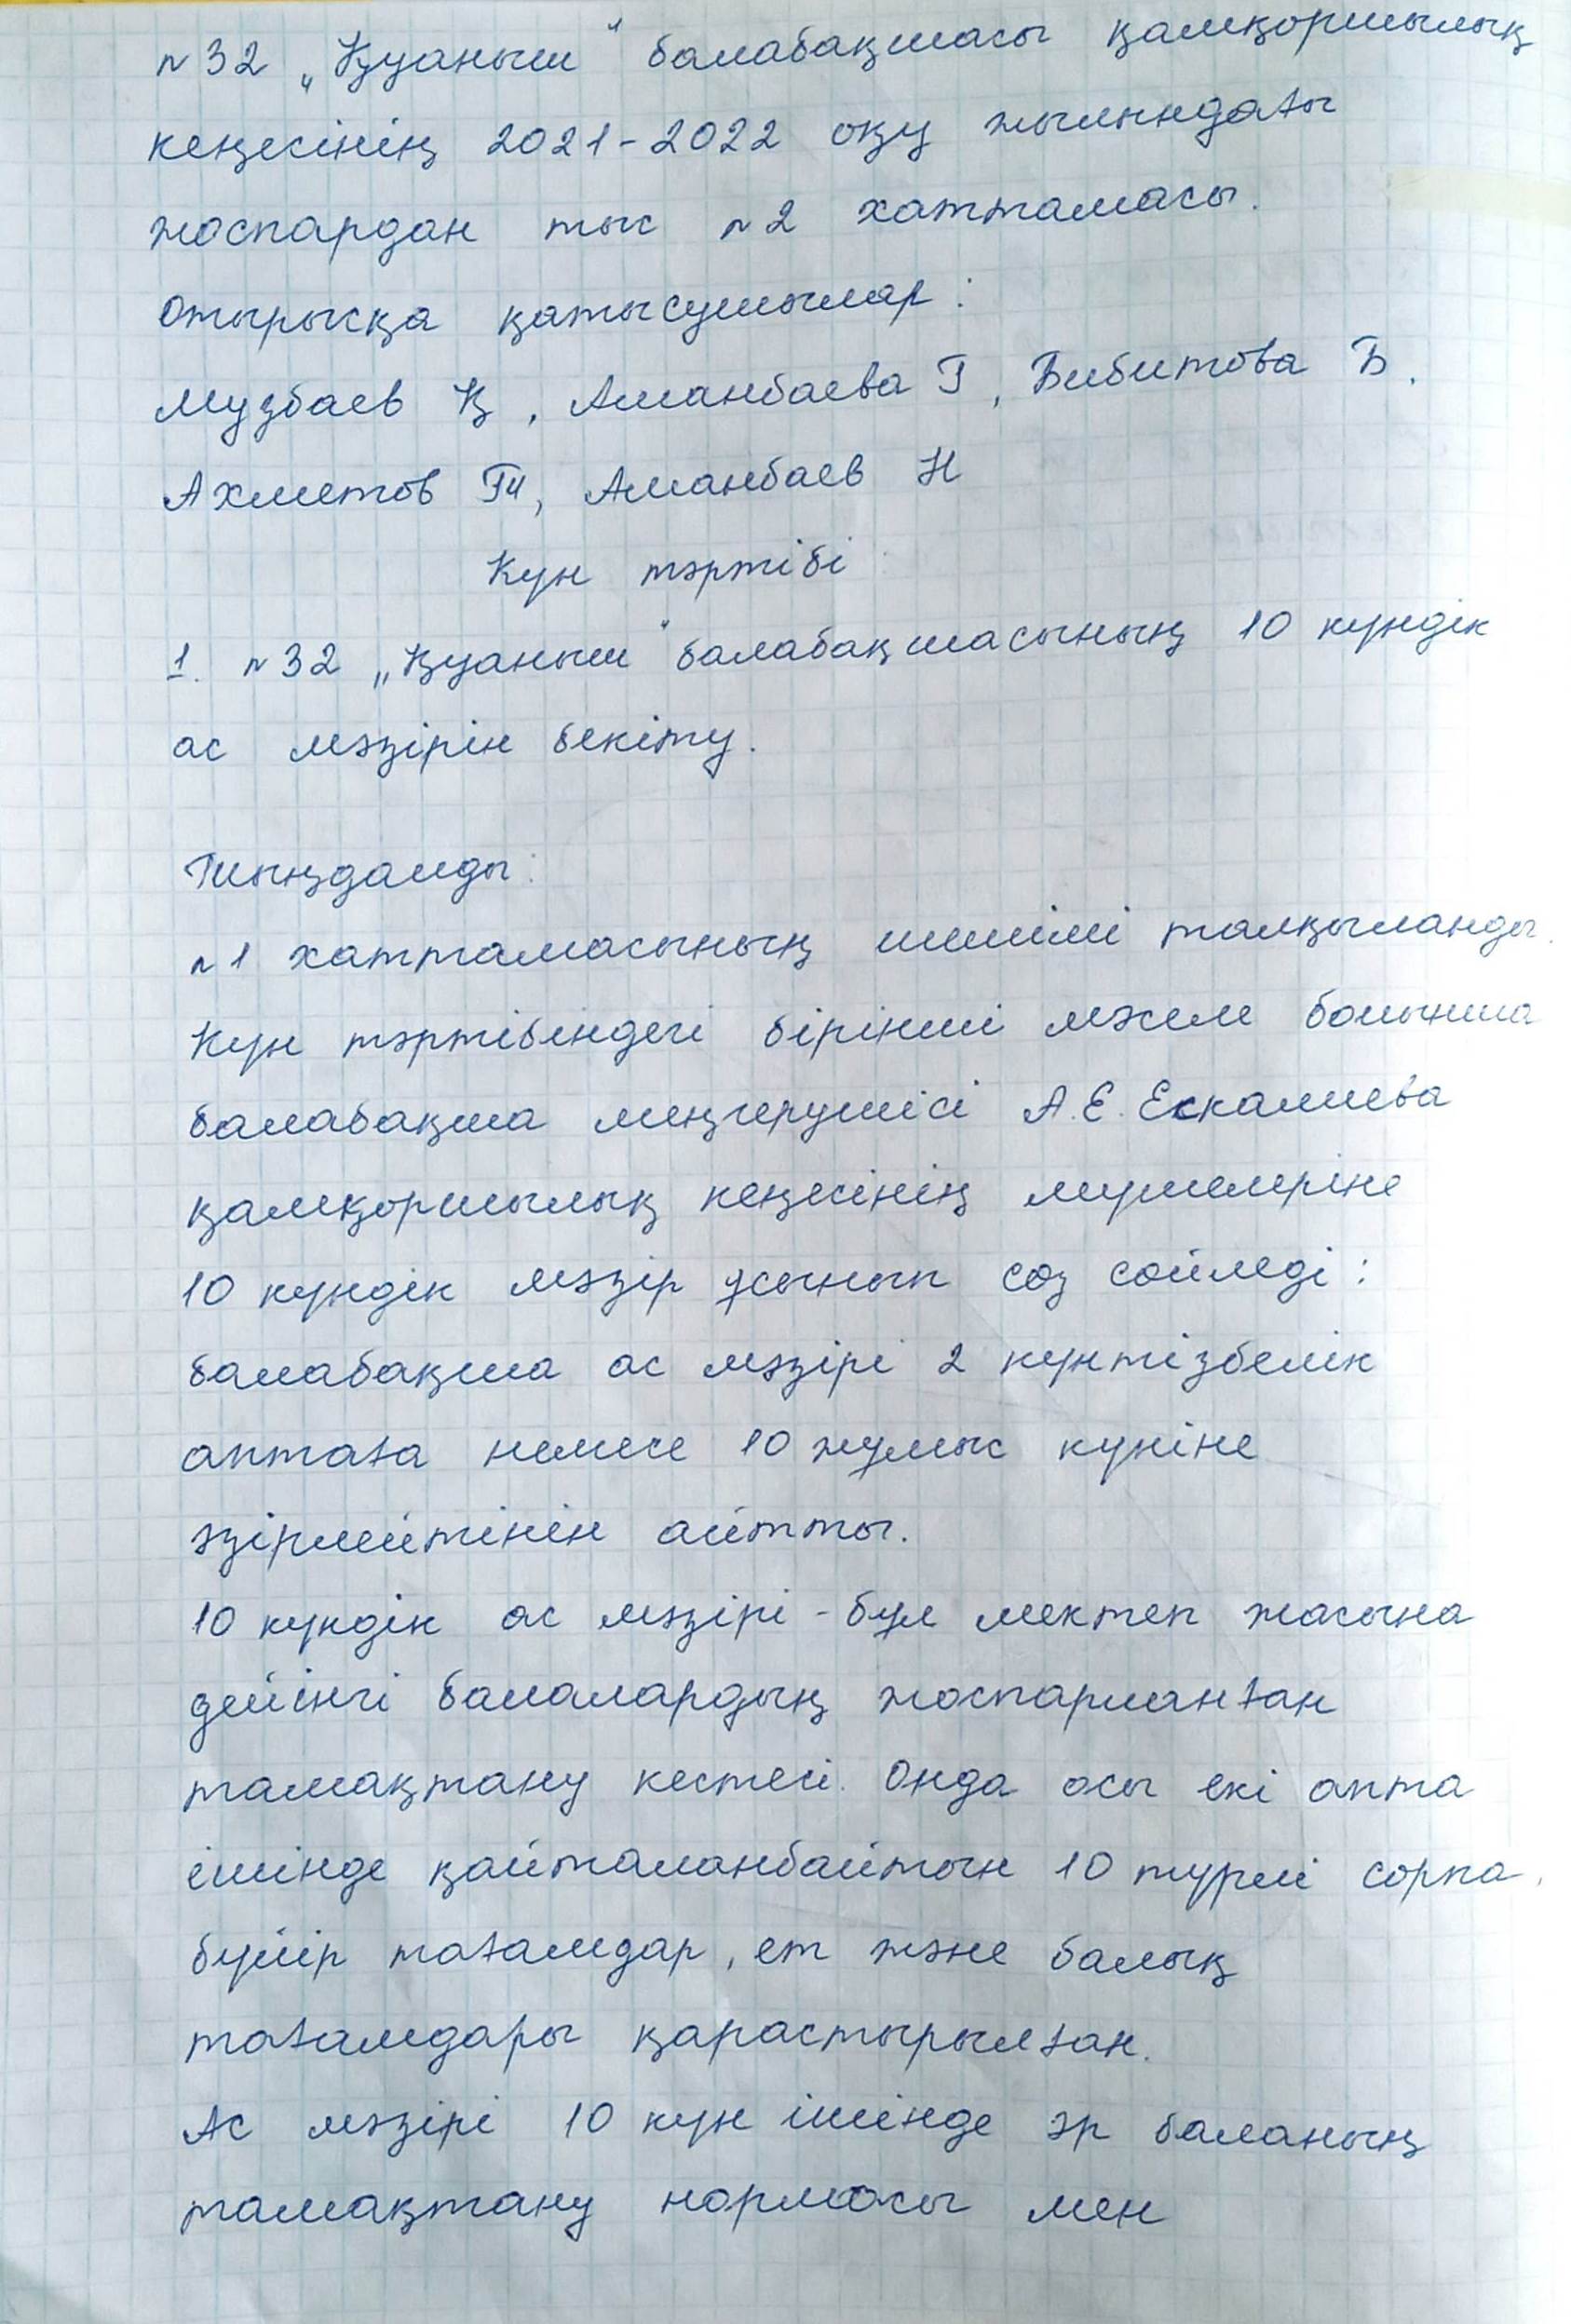 №32 „Қуаныш" балабақшасы қамқоршылық
кеңесінің 2021-2022 оқу жылындағы
жоспардан тыс №2 хаттамасы.
Отырысқа қатысушылар:
Музбаев Қ, Аманбаева Г, Бибитова Б.
Ахметов Т, Аманбаев Н
Күн тәртібі:
1. №32 „Қуаныш" балабақшасының 10 күндік
ас мәзірін бекіту.
Тыңдалды:
№1 хаттамасының шешімі талқыланды.
Күн тәртібіндегі бірінші мәселе бойынша
балабақша меңгерушісі А.Е. Ескалиева
қамқоршылық кеңесінің мүшелеріне
10 күндік мәзір ұсынып сөз сөйледі:
балабақша ас мәзірі 2 күнтізбелік
аптаға немесе 10 жұмыс күніне
әзірлейтінін айтты.
10 күндік ас мәзірі - бұл мектеп жасына
дейінгі балалардың жоспарланған
тамақтану кестесі. Онда осы екі апта
ішінде қайталанбайтын 10 түрлі сорпа,
бүйір тағамдар, ет және балық
тағамдары қарастырылған.
Ас мәзірі 10 күн ішінде әр баланың
тамақтану нормасы мен